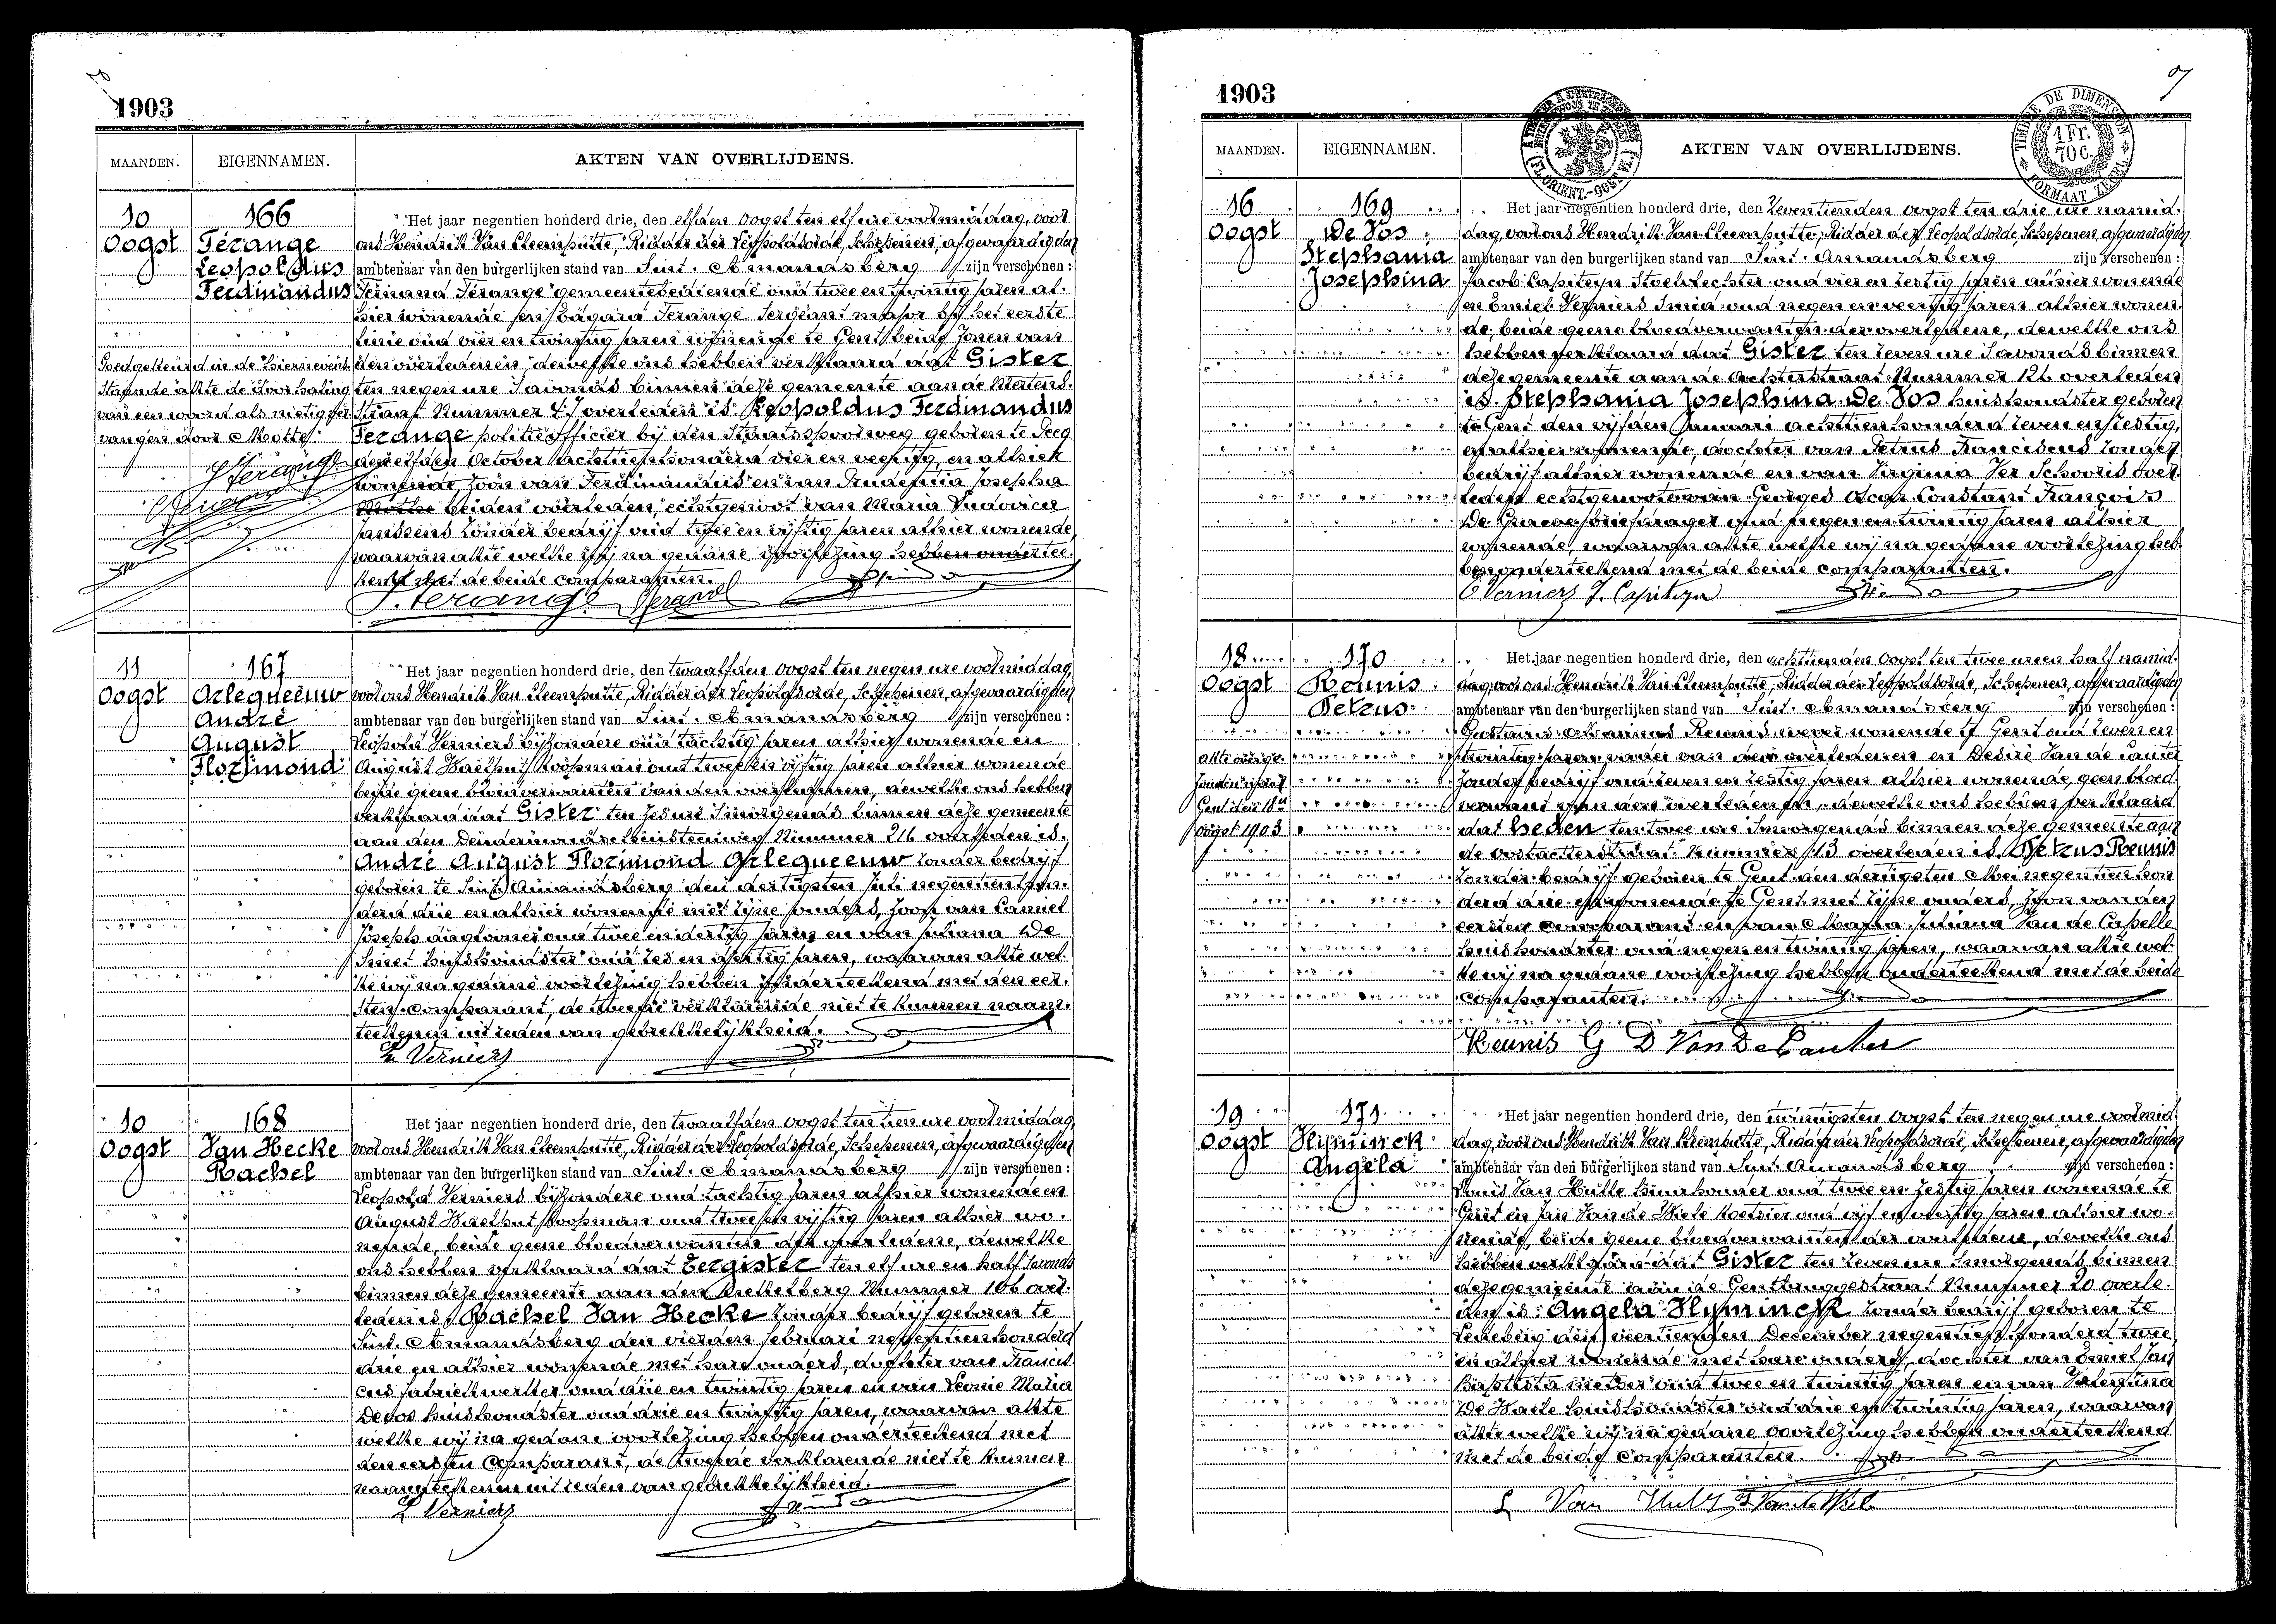 1903
MAANDEN. EIGENNAMEN. AKTEN VAN OVERLIJDENS.
10 166
Oogst Ferange
Leopoldus
Ferdinandus
Het jaar negentien honderd drie, den elfden Oogst ten elf ure voormiddag, voor
ons Hendrik Van Cleemputte, Ridder der Leopoldsorde, Schepenen, afgevaardigden
ambtenaar van den burgerlijken stand van Sint. Amandsberg zijn verschenen :
Fernand Ferange gemeentebediende oud twee en twintig jaren al-
hier wonende en Edgard Ferange Sergeant majoor bij het eerste
linie oud vier en twintig jaren wonende te Gent beide zonen van
den overledenen, dewelke ons hebben verklaard dat Gister
ten negen ure 'savonds binnen deze gemeente aan de Mertens-
straat Nummer 47 overleden is Leopoldus Ferdinandus
Ferange politieofficier bij den Staatsspoorweg geboren te
den October achttienhonderd vier en veertig, en alhier
wonende zoon van Ferdinandus en van Prudentia Josepha
beiden overleden, echtgenoot van Maria Ludovica
Janssens zonder bedrijf oud twee en vijftig jaren alhier wonende
waarvan akte welke wij na gedane voorlezing hebben ondertee-
kend met de beide comparanten.
Goedgekeurd in de hiernevens
staande akte de doorhaling
van een woord als nietig ver-
vangen door Motte.
F. Ferange Ferange
11 167
Oogst Arlequeeuw
André
August
Florimond
Het jaar negentien honderd drie, den twaalfden Oogst ten negen ure voormiddag,
voor ons Hendrik Van Cleemputte, Ridder der Leopoldsorde, Schepenen, afgevaardigden
ambtenaar van den burgerlijken stand van Sint. Amandsberg zijn verschenen :
Leopold Verniers bijzondere oud tachtig jaren alhier wonende en
August Haelhut koopman oud twee en vijftig jaren alhier wonende
beide geene bloedverwanten van den overledenen, dewelke ons hebben
verklaard dat Gister ten zes ure 'smorgends binnen deze gemeente
aan den Dendermondschensteenweg Nummer 216 overleden is
André August Florimond Arlequeeuw zonder bedrijf
geboren te Sint. Amandsberg den dertigsten Juli negentienhon-
derd drie en alhier wonende met zijne ouders, zoon van Camiel
Joseph dagloner oud twee en dertig jaren en van Juliana De
Smet huishoudster oud zes en jaren, waarvan akte wel-
ke wij na gedane voorlezing hebben onderteekend met den eer-
sten comparant, de tweede verklarende niet te kunnen naam-
teekenen uit reden van gebrekkelijkheid.
L Verniers
10 168
Oogst Van Hecke
Rachel
Het jaar negentien honderd drie, den twaalfden Oogst ten tien ure voormiddag
voor ons Hendrik Van Cleemputte, Ridder der Leopoldsorde, Schepenen, afgevaardigden
ambtenaar van den burgerlijken stand van Sint. Amandsberg zijn verschenen :
Leopold Verniers bijzondere oud tachtig jaren alhier wonende en
August Haelhut koopman oud twee en vijftig jaren alhier wo-
nende, beide geene bloedverwanten der overledene, dewelke
ons hebben verklaard dat Eergister ten elf ure en half 'savonds
binnen deze gemeente aan den Rietkelberg Nummer 106 over-
leden is Rachel Van Hecke zonder bedrijf geboren te
Sint. Amandsberg den vierden Februari negentienhonderd
drie en alhier wonende met hare ouders, dochter van Francis-
cus fabriekwerker oud drie en twintig jaren en van Leonie Maria
Devos huishoudster oud drie en twintig jaren, waarvan akte
welke wij na gedane voorlezing hebben onderteekend met
den eersten Comparant, de tweede verklarende niet te kunnen
naamteekenen uit reden van gebrekkelijkheid.
L Verniers
1903
TIMBRE DE DIMENSION
1 Fr.
70 C.
FORMAAT ZEGEL
MAANDEN. EIGENNAMEN. AKTEN VAN OVERLIJDENS.
16 169
Oogst De Vos
Stephania
Josephina
Het jaar negentien honderd drie, den zeventienden Oogst ten drie ure namid-
dag, voor ons Hendrik Van Cleemputte, Ridder der Leopoldsorde, Schepenen, afgevaardigden
ambtenaar van den burgerlijken stand van Sint. Amandsberg zijn verschenen :
Jacob Capiteyn Stoelvlechter oud vier en zestig jaren alhier wonende
en Emiel Verniers Smid oud negen en veertig jaren alhier wonen-
de, beide geene bloedverwanten der overledene, dewelke ons
hebben verklaard dat Gister ten zeven ure 'savonds binnen
deze gemeente aan de Achterstraat Nummer 126 overleden
is Stephania Josephina De Vos huishoudster geboren
te Gent den vijfden Januari achttienhonderd zeven en zestig,
en alhier wonende, dochter van Petrus Franciscus zonder
bedrijf alhier wonende en van Virginia Ver Schooris over-
leden echtgenoote van Georges Oscar Constant François
De Greeve briefdrager oud negen en twintig jaren alhier
wonende, waarvan akte welke wij na gedane voorlezing heb-
ben onderteekend met de beide comparanten.
E Verniers J. Capiteyn
18 170
Oogst Reunis
Petrus
Het jaar negentien honderd drie, den achttienden Oogst ten twee uren half namid-
dag, voor ons Hendrik Van Cleemputte, Ridder der Leopoldsorde, Schepenen, afgevaardigden
ambtenaar van den burgerlijken stand van Sint. Amandsberg zijn verschenen :
Gustavus Reunis wever wonende te Gent oud zeven en
twintig jaren vader van den overledenen en Desiré Van de Canter
zonder bedrijf oud zeven en zestig jaren alhier wonende, geen bloed-
verwant van den overledenen, dewelke ons hebben verklaard
dat heden ten twee ure 'smorgends binnen deze gemeente aan
de Oostachterstraat Nummer 13 overleden is Petrus Reunis
zonder bedrijf geboren te Gent den dertigsten Mei negentienhon-
derd drie en wonende te Gent met zijne ouders, zoon van den
eersten comparant en van Maria Juliana Van de Casselle
huishoudster oud negen en twintig jaren, waarvan akte wel-
ke wij na gedane voorlezing hebben onderteekend met de beide
comparanten.
Akte overge-
zonden naar
Gent den 18n
oogst 1903
Reunis G D Van De Canter
19 171
Oogst Hyminck
Angela
Het jaar negentien honderd drie, den twintigsten Oogst ten negen ure voormid-
dag, voor ons Hendrik Van Cleemputte, Ridder der Leopoldsorde, Schepenen, afgevaardigden
ambtenaar van den burgerlijken stand van Sint. Amandsberg zijn verschenen :
Louis Van Hulle huurhouder oud twee en zestig jaren wonende te
Gent en Jan Van de Wiele koetsier oud vijf en veertig jaren alhier wo-
nende, beide geene bloedverwanten der overledene, dewelke ons
hebben verklaard dat Gister ten zeven ure 'smorgends binnen
deze gemeente aan de Gentbruggestraat Nummer 20 overle-
den is Angela Hyminck zonder bedrijf geboren te
Ledeberg den veertienden December negentien honderd twee
en alhier wonende met hare ouders, dochter van Emiel Jan
Baptista oud twee en twintig jaren en van Valentina
De Haele huishoudster oud drie en twintig jaren, waarvan
akte welke wij na gedane voorlezing hebben onderteekend
met de beide comparanten.
L Van Hulle J. Van de Wiele